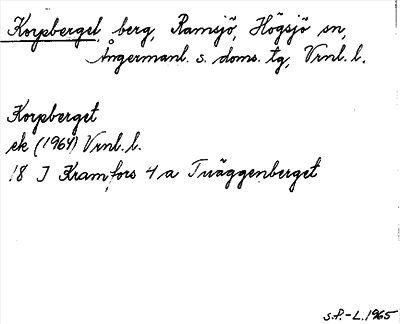 Korpberget, berg, Ramsjö, Högsjö sn,
Ångermanl. s. doms. tg, Vrnl. l.
Korpberget
ek (1964) Vrnl. l.
18 I Kramfors 4 a Tväggenberget
S.P.-L. 1965